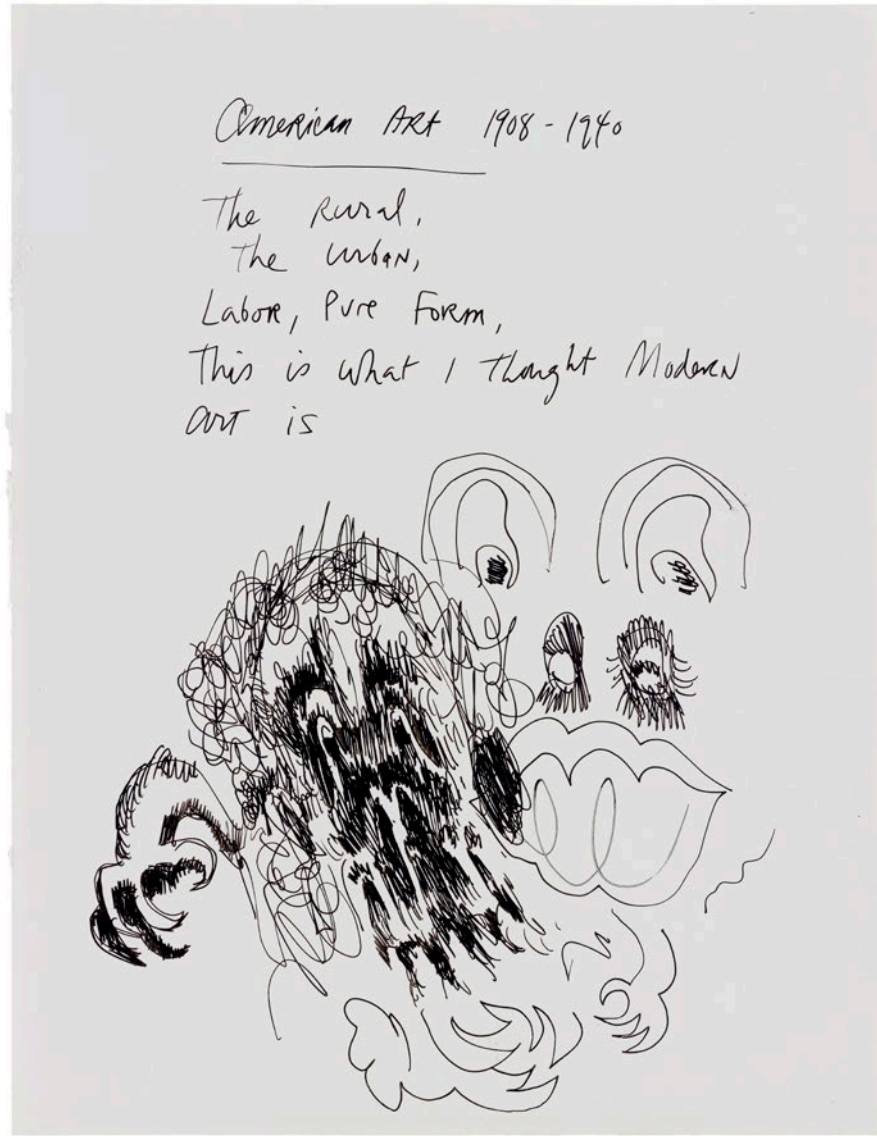 American Art 1908-1940
The Rural,
The Urban,
Labor, Pure Form,
This is what I thought Modern
art is